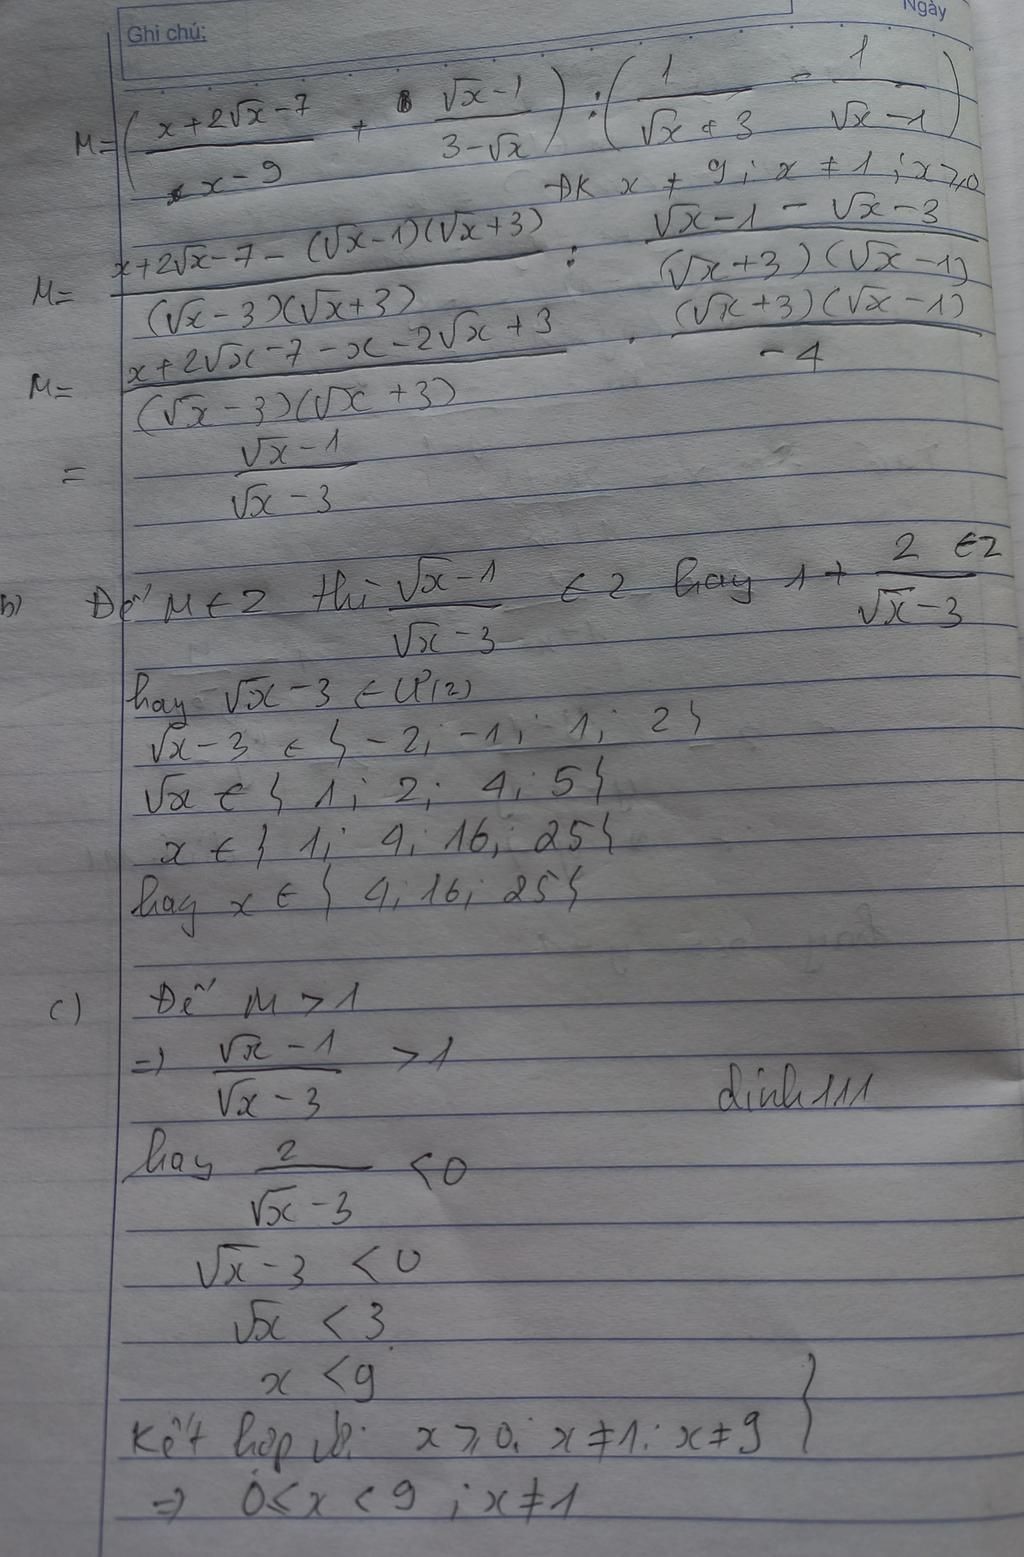 Ghi chú:
Ngày
M = ( (x + 2√x - 7)/(x - 9) + (√x - 1)/(3 - √x) ) : ( 1/(√x + 3) - 1/(√x - 1) )
ĐK x ≠ 9 ; x ≠ 1 ; x ⩾ 0
M = (x + 2√x - 7 - (√x - 1)(√x + 3))/((√x - 3)(√x + 3)) : (√x - 1 - √x - 3)/((√x + 3)(√x - 1))
M = (x + 2√x - 7 - x - 2√x + 3)/((√x - 3)(√x + 3)) . ((√x + 3)(√x - 1))/(-4)
= (√x - 1)/(√x - 3)
b) Để M ∈ Z thì (√x - 1)/(√x - 3) ∈ Z hay 1 + 2/(√x - 3) ∈ Z
hay √x - 3 ∈ Ư(2)
√x - 3 ∈ { -2; -1; 1; 2 }
√x ∈ { 1; 2; 4; 5 }
x ∈ { 1; 4; 16; 25 }
hay x ∈ { 4; 16; 25 }
c) Để M > 1
=> (√x - 1)/(√x - 3) > 1
dinh111
hay 2/(√x - 3) < 0
√x - 3 < 0
√x < 3
x < 9
Kết hợp với x ⩾ 0; x ≠ 1; x ≠ 9 }
=> 0 ≤ x < 9 ; x ≠ 1